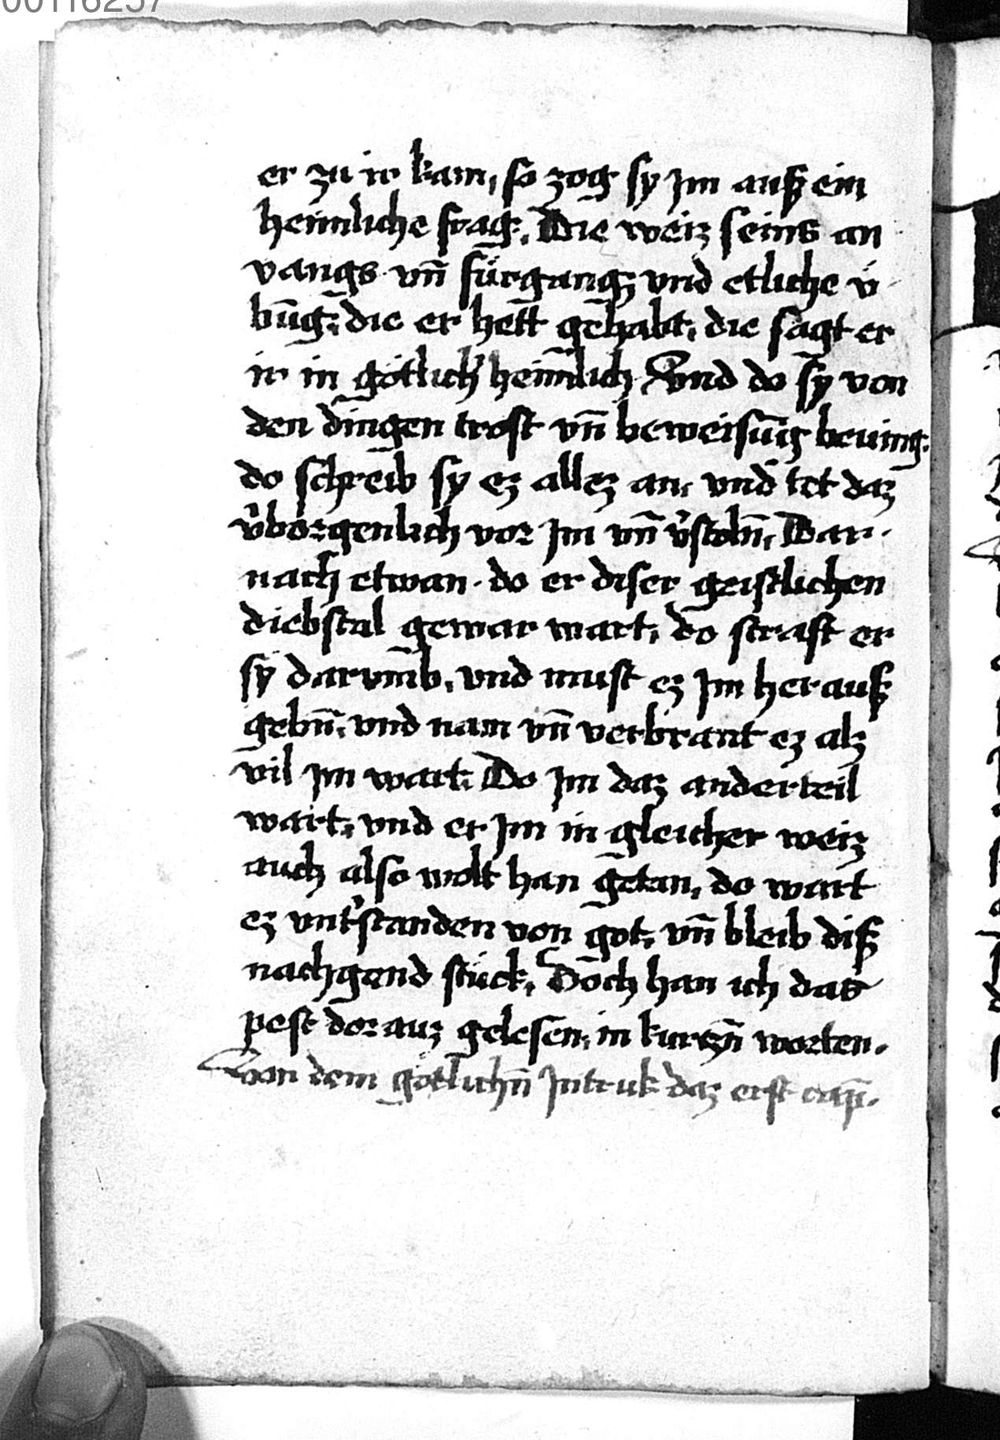 00116257
er zu ir kam, so zog sy jm auß ein
heimliche frag, Die weiz seins an
vangs vn̄ fürgangz vnd etliche v̈
būg, die er hett gehabt, die sagt er
ir in götlich' heimlich Vnd do sy von
den dingen trost vn̄ beweisūg beving.
do schreib sy ez allez an, vnd tet daz
v'borgenlich vor jm vn̄ v'stoln̄, Dar
nach etwan. do er diser geistlichen
diebstal gewar wart, do straft er
sy darvmb, vnd must ez jm herauß
gebn̄, vnd nam vn̄ verbrant ez alz
vil jm wart, Do jm daz anderteil
wart, vnd er jm in gleicher weiz
auch also wolt han getan, do wart
ez vnt'standen von got, vn̄ bleib diß
nachgend stück, Doch han ich das
pest dor auz gelesen, in kurtzn̄ worten.
Von dem götlichn̄ jntruk daz erst cap̄.